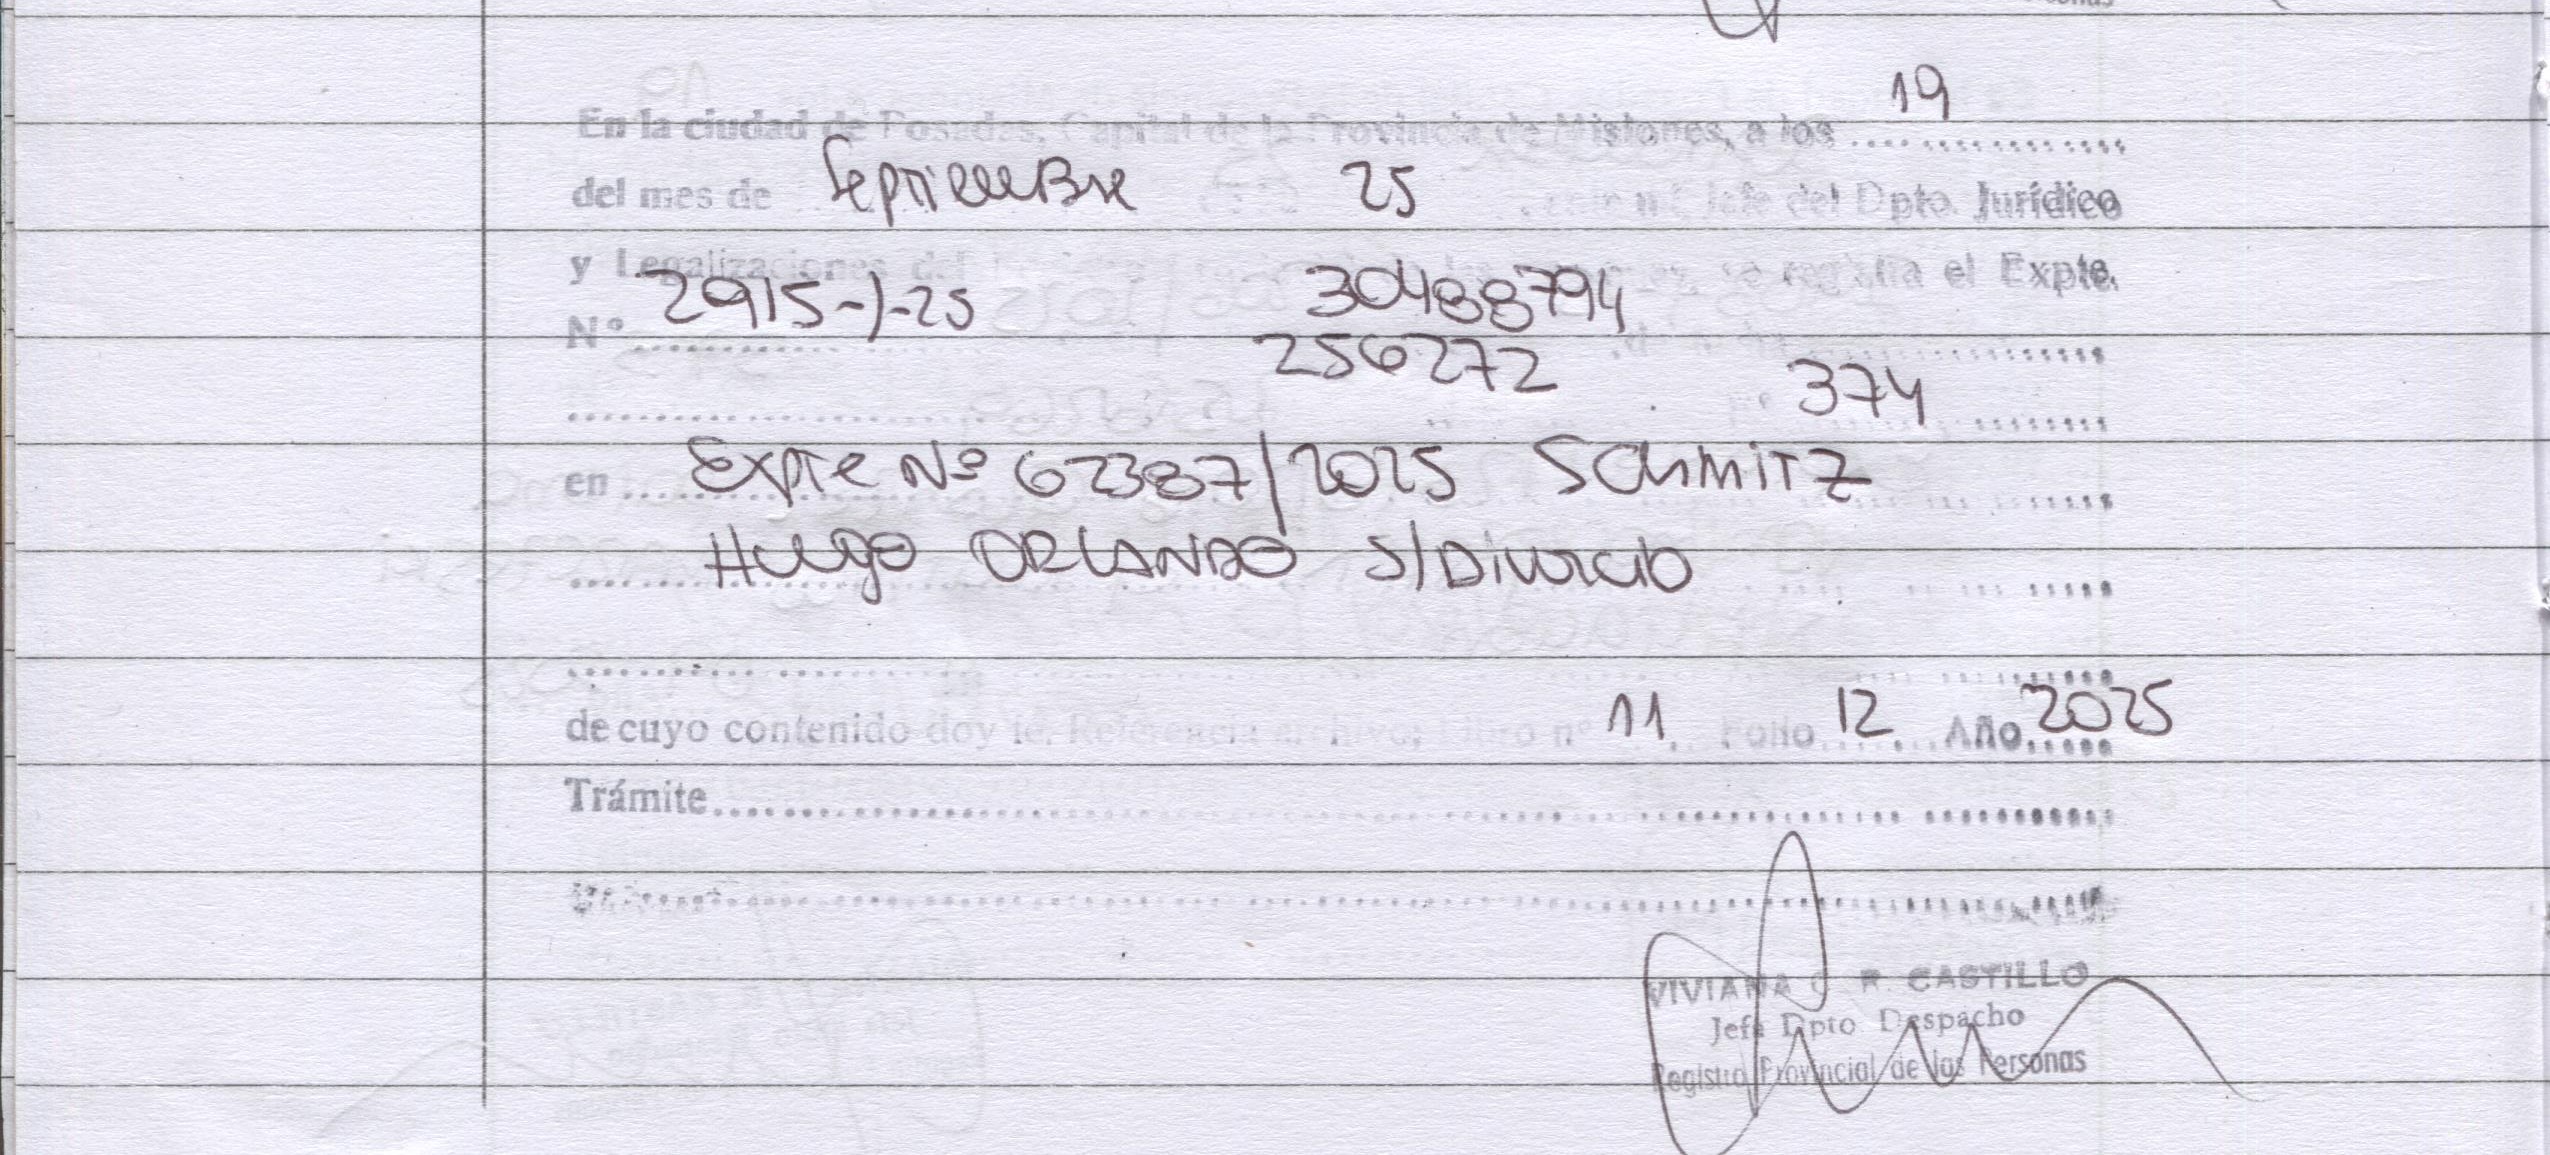 19
En la ciudad de Posadas, Capital de la Provincia de Misiones, a los ................
del mes de Septiembre 25 Jefe del Dpto. Jurídico
y Legalizaciones del se registra el Expte.
Nº 2915-J-25 30488794
256272 374
en Expte Nº 62387/2025 Schmitz
Hugo ORLANDO s/Divorcio
de cuyo contenido doy fe. Referencia archivo: libro nº 11 Folio 12 Año 2025
Trámite
VIVIANA C. R. CASTILLO
Jefa Dpto. Despacho
Registro Provincial de las Personas